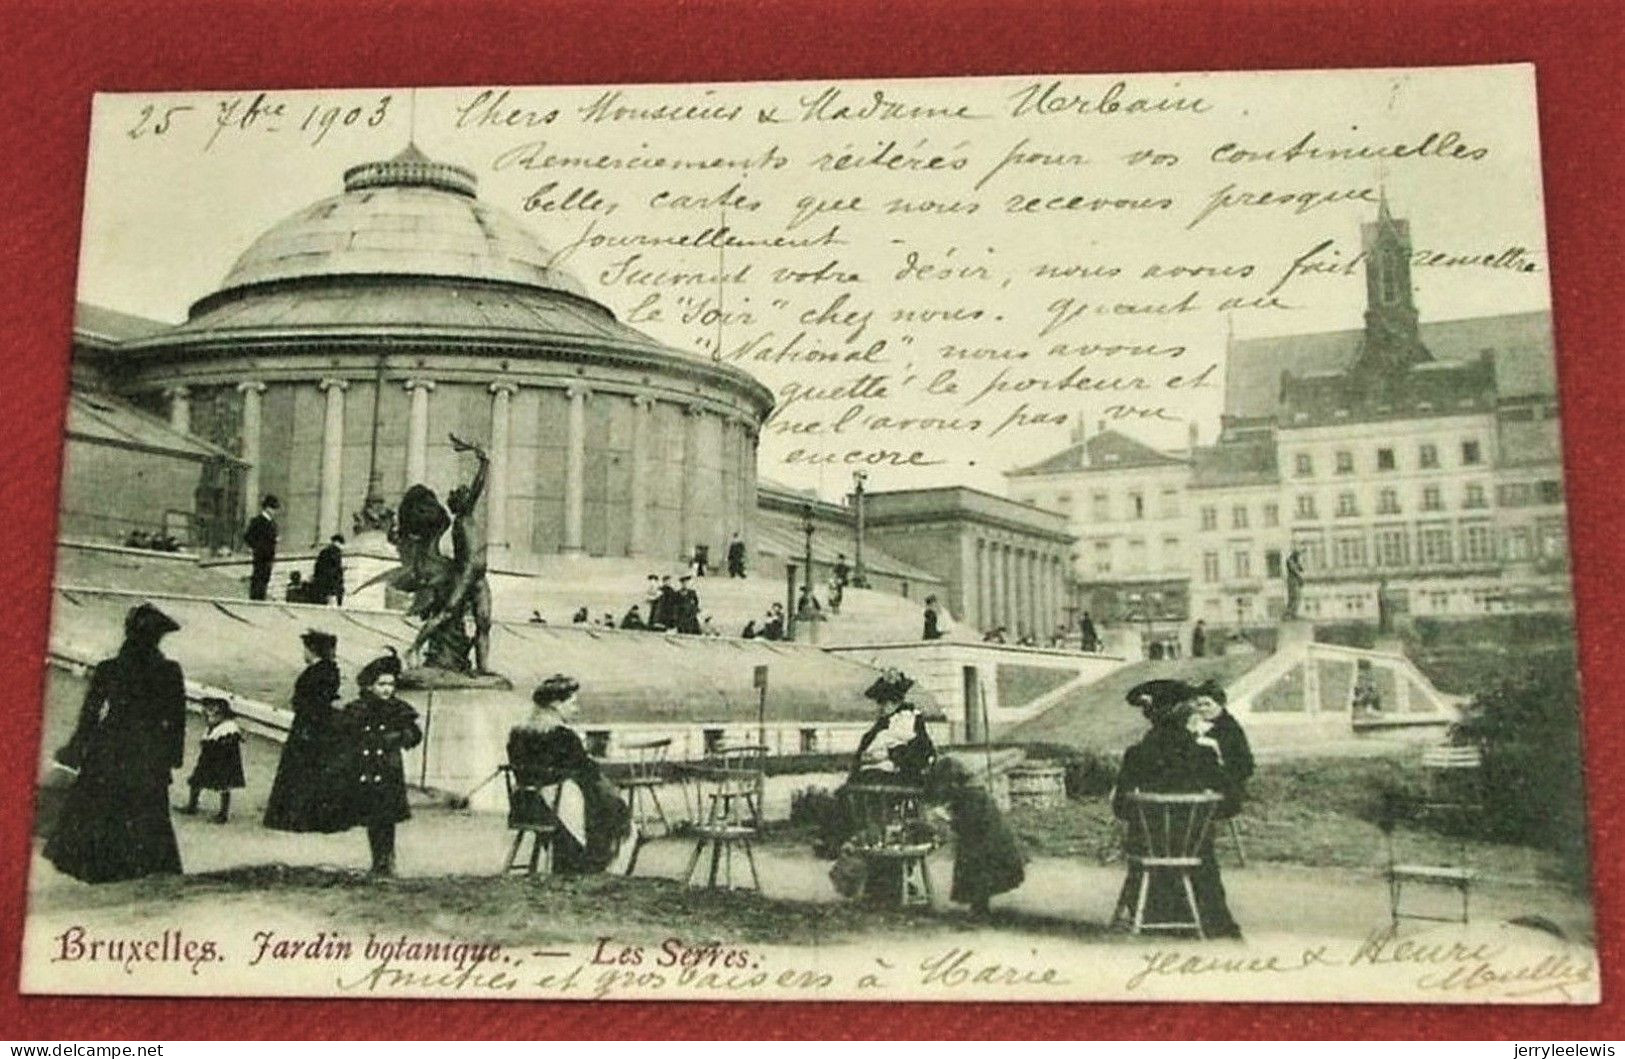 25 7bre 1903 Chers Monsieur & Madame Urbain.
Remerciements réitérés pour vos continuelles
belles cartes que nous recevons presque
journellement -
Suivant votre désir, nous avons fait remettre
le "Soir" chez nous. Quant au
"National", nous avons
guetté le porteur et
ne l'avons pas vu
encore.
Bruxelles. Jardin botanique. — Les Serres.
Amitiés et gros baisers à Marie Jeanne & Henri
delcampe.net
jerryleelewis